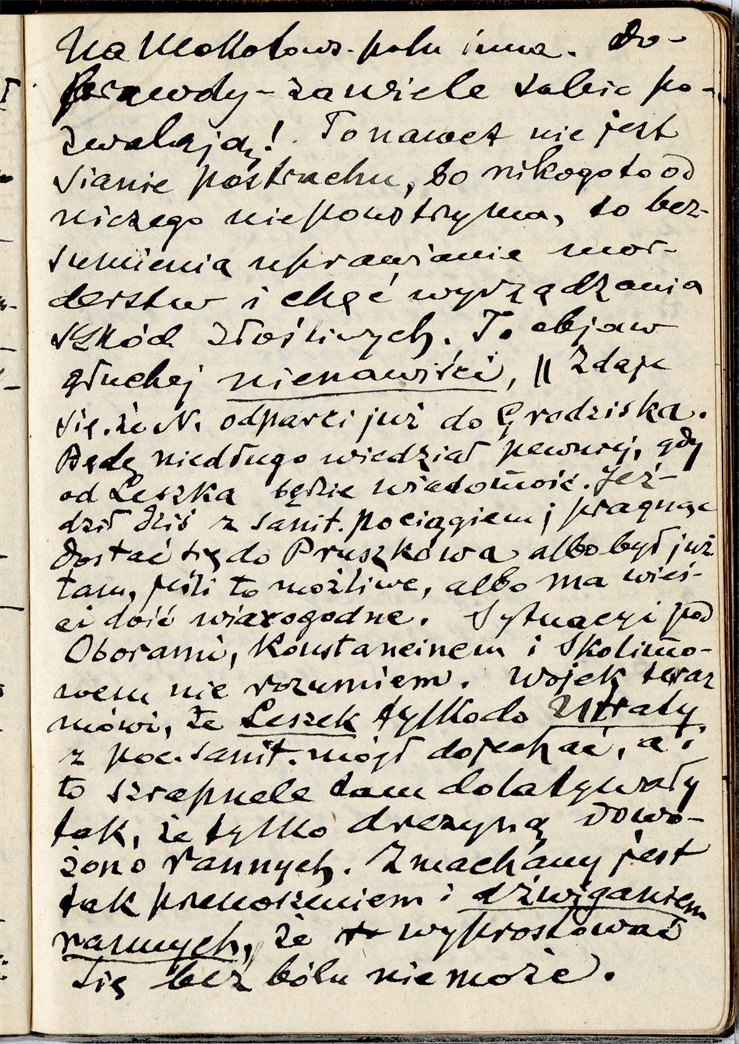 na Mokotows. polu inna. Do-
prawdy – zawiele sobie po-
zwalają! To nawet nie jest
sianie postrachu, bo nikogo to od
niczego niepowstrzyma, to bez-
sumienia uprawianie mor-
derstw i chęć wyrządzania
szkód złośliwych. To objaw
głuchej nienawiści, || Zdaje
się, że N. odparci już do Grodziska.
Będę niedługo wiedział pewniej, gdy
od Leszka będzie wiadomość. Jeź-
dził dziś z sanit. pociągiem; pragnąc
dostać się do Pruszkowa albo był już
tam, jeśli to możliwe, albo ma wieś-
ci dość wiarogodne. Sytuacyi pod
Oborami, Konstancinem i Skolimo-
wem nie rozumiem. Wojek teraz
mówi, że Leszek tylko do Utraty
z poc. sanit. mógł dojechać, a i
to szrapnele tam dolatywały
tak, że tylko drezyną dowo-
żono rannych. Zmachany jest
tak przenoszeniem i dźwiganiem
rannych, że wyprostować
się bez bólu nie może.